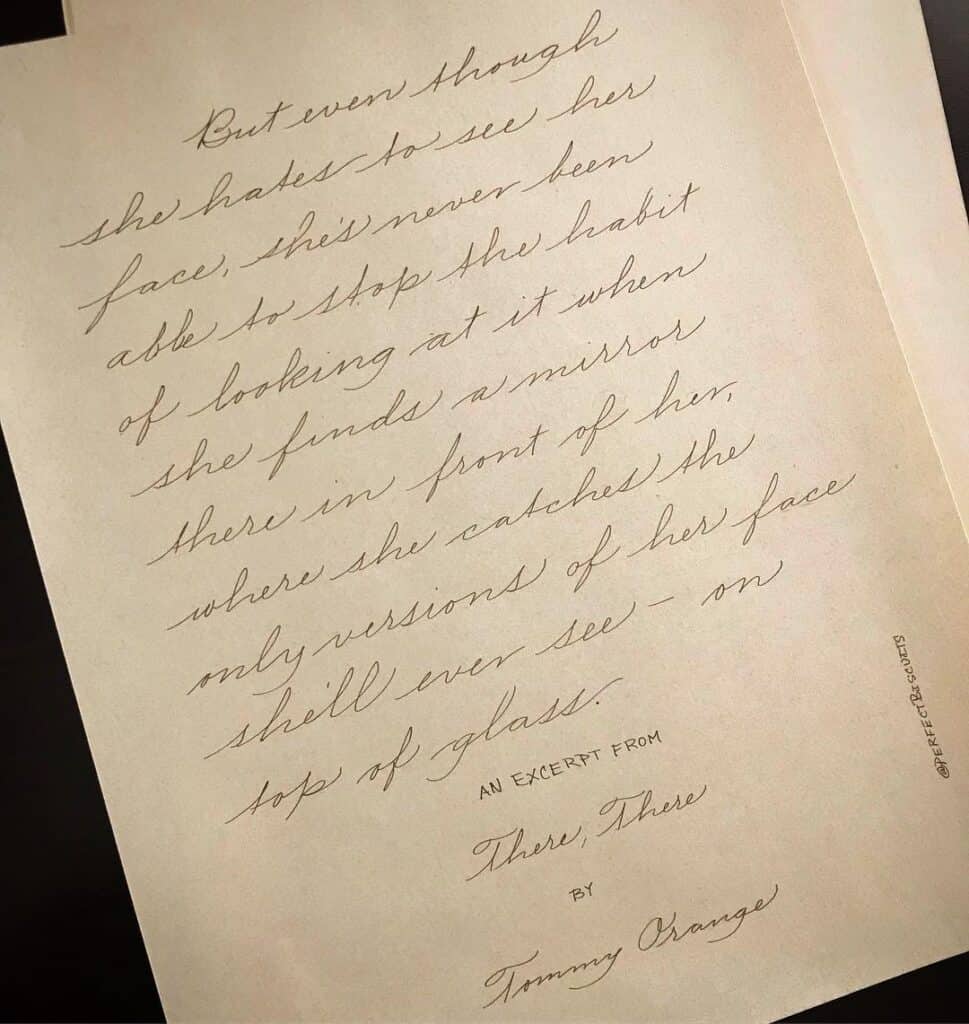 But even though
she hates to see her
face, she's never been
able to stop the habit
of looking at it when
she finds a mirror
there in front of her,
where she catches the
only versions of her face
she'll ever see – on
top of glass.
AN EXCERPT FROM
There, There
BY
Tommy Orange
@PERFECTBISCUITS